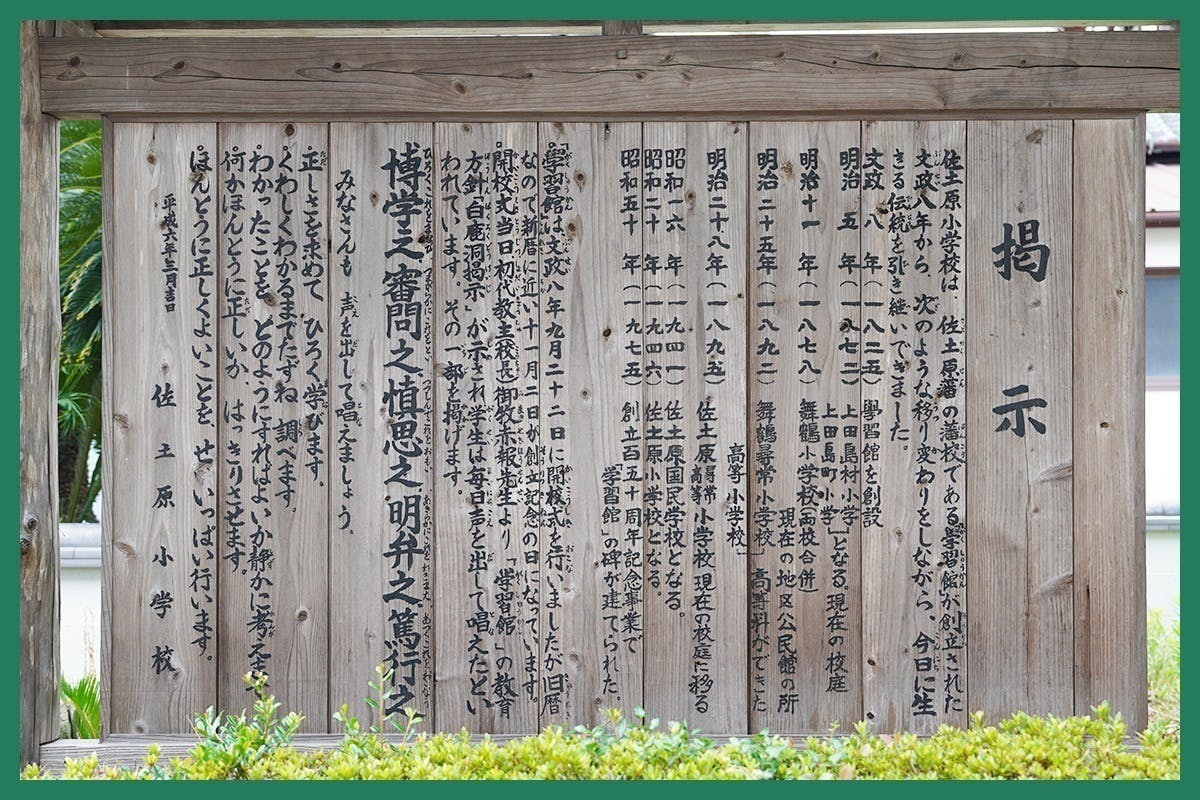 掲示
佐土原小学校は、佐土原藩の藩校である学習館が創立された
文政八年から、次のような移り変わりをしながら、今日に生
きる伝統を引き継いできました。
文政 八 年(一八二五) 學習館を創設
明治 五 年(一八七二) 上田島村小学
上田島町小学 となる。現在の校庭
明治十一 年(一八七八) 舞鶴小学校(両校合併)
現在の地区公民館の所
明治二十五年(一八九二) 舞鶴尋常小学校 高等科ができた
高等小学校
明治二十八年(一八九五) 佐土原尋常高等小学校 現在の校庭に移る
昭和一六 年(一九四一) 佐土原国民学校となる。
昭和二十 年(一九四六) 佐土原小学校となる。
昭和五十 年(一九七五) 創立百五十周年記念事業で
「学習館」の碑が建てられた。
學習館は文政八年九月二十二日に開校式を行いましたが旧暦
なので新暦に近い十一月二日が創立記念の日になっています。
開校式当日初代教主(校長)御牧赤報先生より「学習館」の教育
方針「白鹿洞掲示」が示され学生は毎日声を出して唱えたとい
われています。その一部を掲げます。
博学之審問之慎思之明弁之篤行之
みなさんも 声を出して唱えましょう。
正しさを求めて ひろく学びます。
くわしくわかるまでたずね 調べます。
わかったことを どのようにすればよいか静かに考えます
何かほんとうに正しいか、はっきりさせます。
ほんとうに正しくよいことを、せいいっぱい行います。
平成六年三月吉日
佐土原小学校